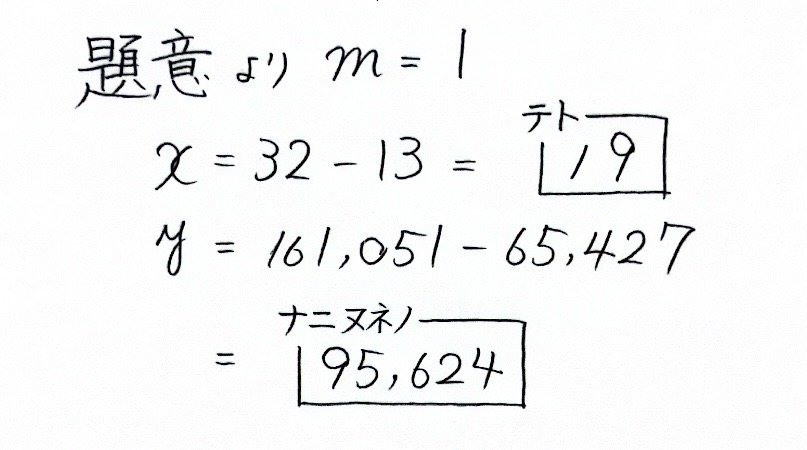 題意より m = 1
x = 32 - 13 = テト 19
y = 161,051 - 65,427
= ナニヌネノ 95,624